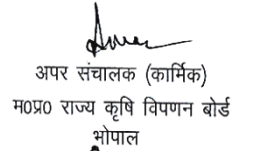 अपर संचालक (कार्मिक)
म०प्र० राज्य कृषि विपणन बोर्ड
भोपाल